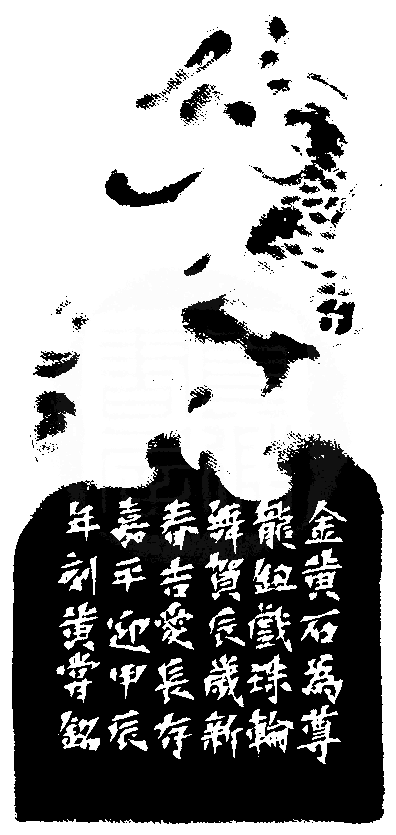 金黄石為尊
龍紐戲珠輪
舞賀辰歲新
春吉愛長存
嘉平迎甲辰
年刻黄銘